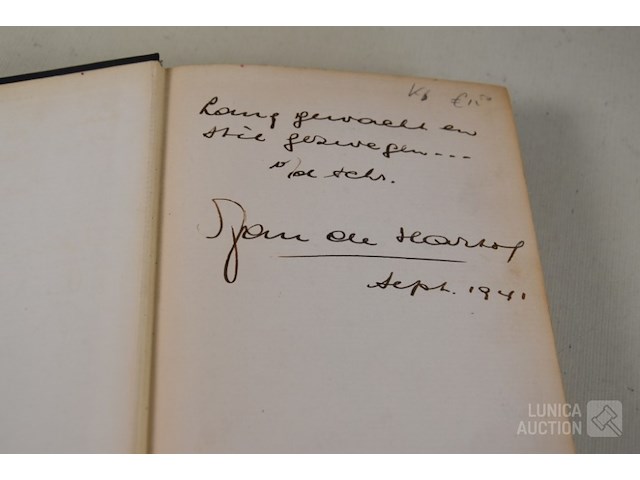 Lang gewacht en
stil gezwegen...
v/d schr.
Jan de Hartog
Sept. 1941
LUNICA
AUCTION